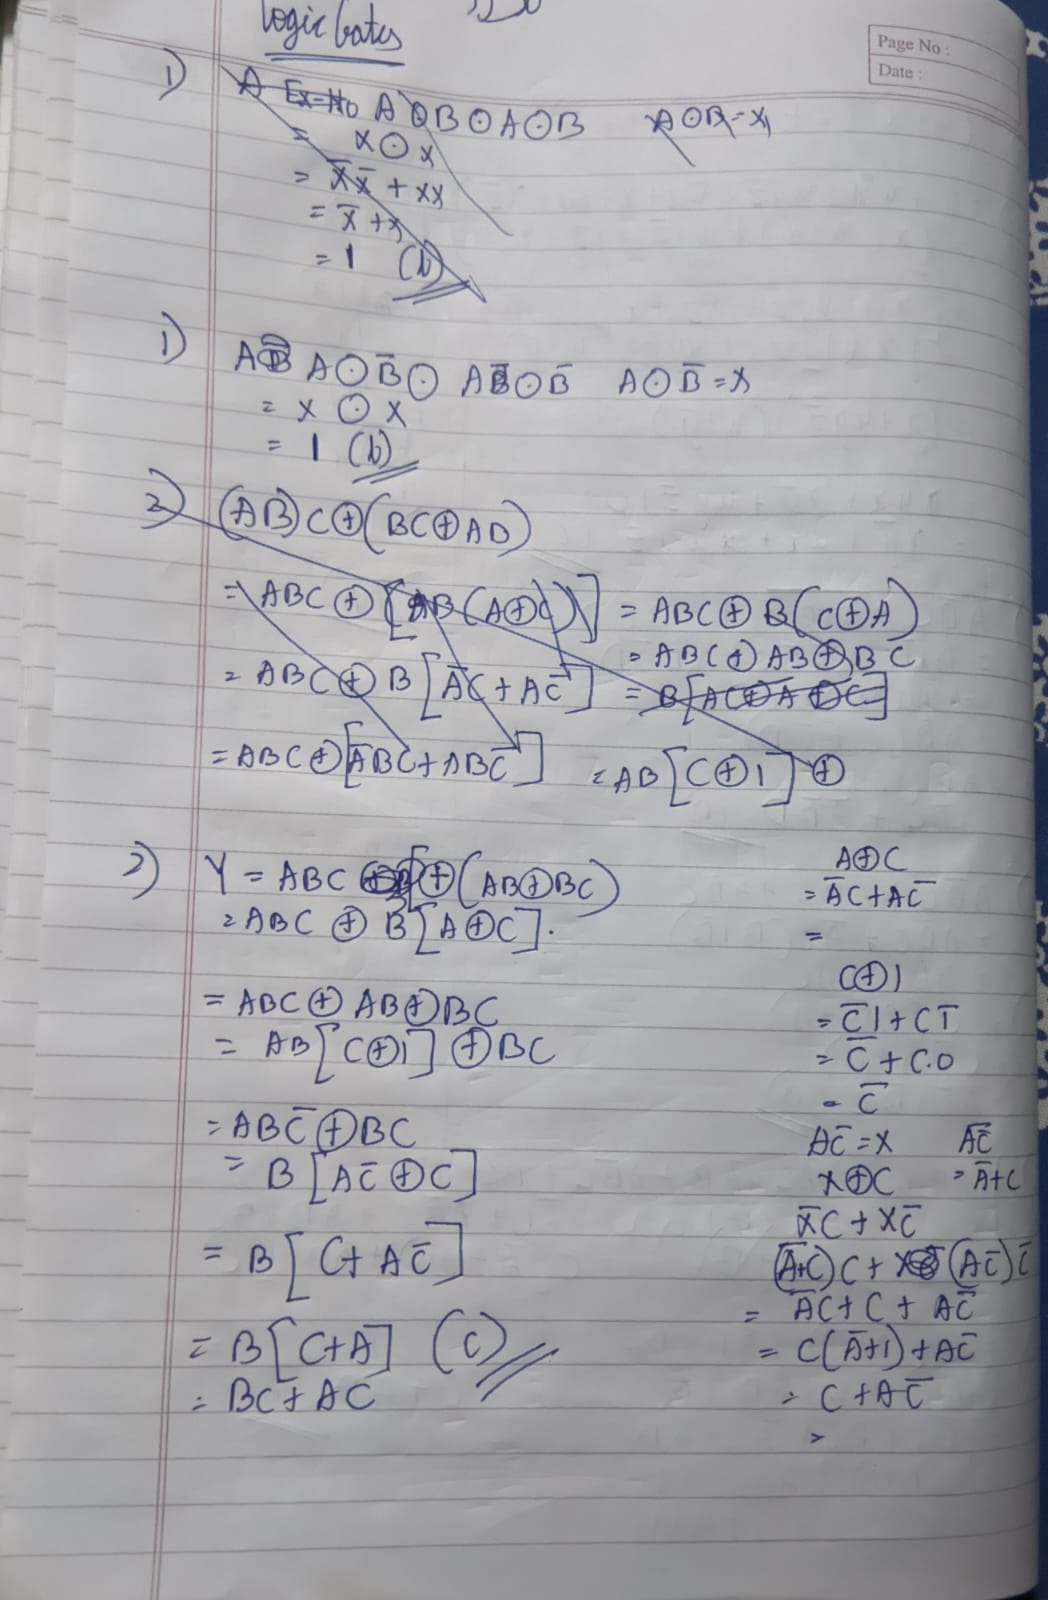 Logic Gates
Page No :
Date :
1) A Ex-No A⊙B⊙A⊙B A⊙B=X
= X⊙X
= X̅X̅ + XX
= X̅ + X
= 1 (b)
1) A⊙B̅⊙ A⊙B̅ A⊙B̅ = X
= X ⊙ X
= 1 (b)
2) (AB)C⊕(BC⊕AB)
= ABC⊕[AB(A⊕C)] = ABC⊕B(C⊕A)
= ABC⊕AB⊕BC
= ABC⊕B[A̅C+AC̅] = B[AC⊕A⊕C]
= ABC⊕[A̅BC+ABC̅] = AB[C⊕1]⊕
2) Y = ABC⊕(AB⊕BC)
= ABC⊕B[A⊕C].
= ABC⊕AB⊕BC
= AB[C⊕1]⊕BC
= ABC̅⊕BC
= B[AC̅⊕C]
= B[C+AC̅]
= B[C+A] (C)
= BC+AC
A⊕C
= A̅C+AC̅
=
C⊕1
= C̅1+C1̅
= C̅+C.0
= C̅
AC̅=X
X⊕C
X̅C+XC̅
(A̅+C)C+(AC̅)C̅
= A̅C+C+AC̅
= C(A̅+1)+AC̅
= C+AC̅
=A̅+C